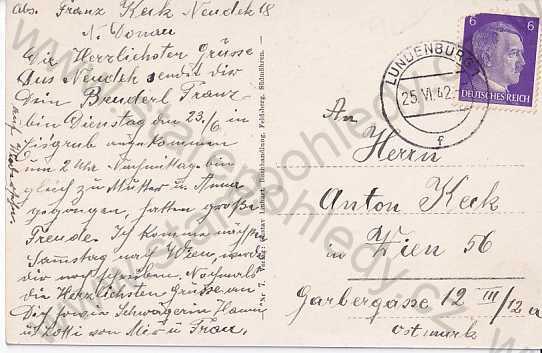 Abs. Franz Keck Neudek 18
N. Donau
Die Herzlichsten Grüsse
Aus Neudek sendet dir
Dein Bruderl Franz
bin Dienstag am 23/6 in
Eisgrub angekommen
um 2 Uhr Nachmittag bin
gleich zu Mutter u Anna
gegangen, hatten große
Freude. Ich komme
Samstag nach Wien, werde
dir noch schreiben. Nochmals
die Herzlichsten Grüsse an
Dich sowie Schwägerin Hanni
u Lotti von Mir u Frau.
Nr 7. Verlag: Gustav Buchhandlung, Feldsberg, Südmähren.
LUNDENBURG 1
25.VI.42
f
6 6
DEUTSCHES REICH
An
Herrn
Anton Keck
in Wien 56
Garbergasse 12 III/12a
Ostmark
www.stare-pohledy.cz